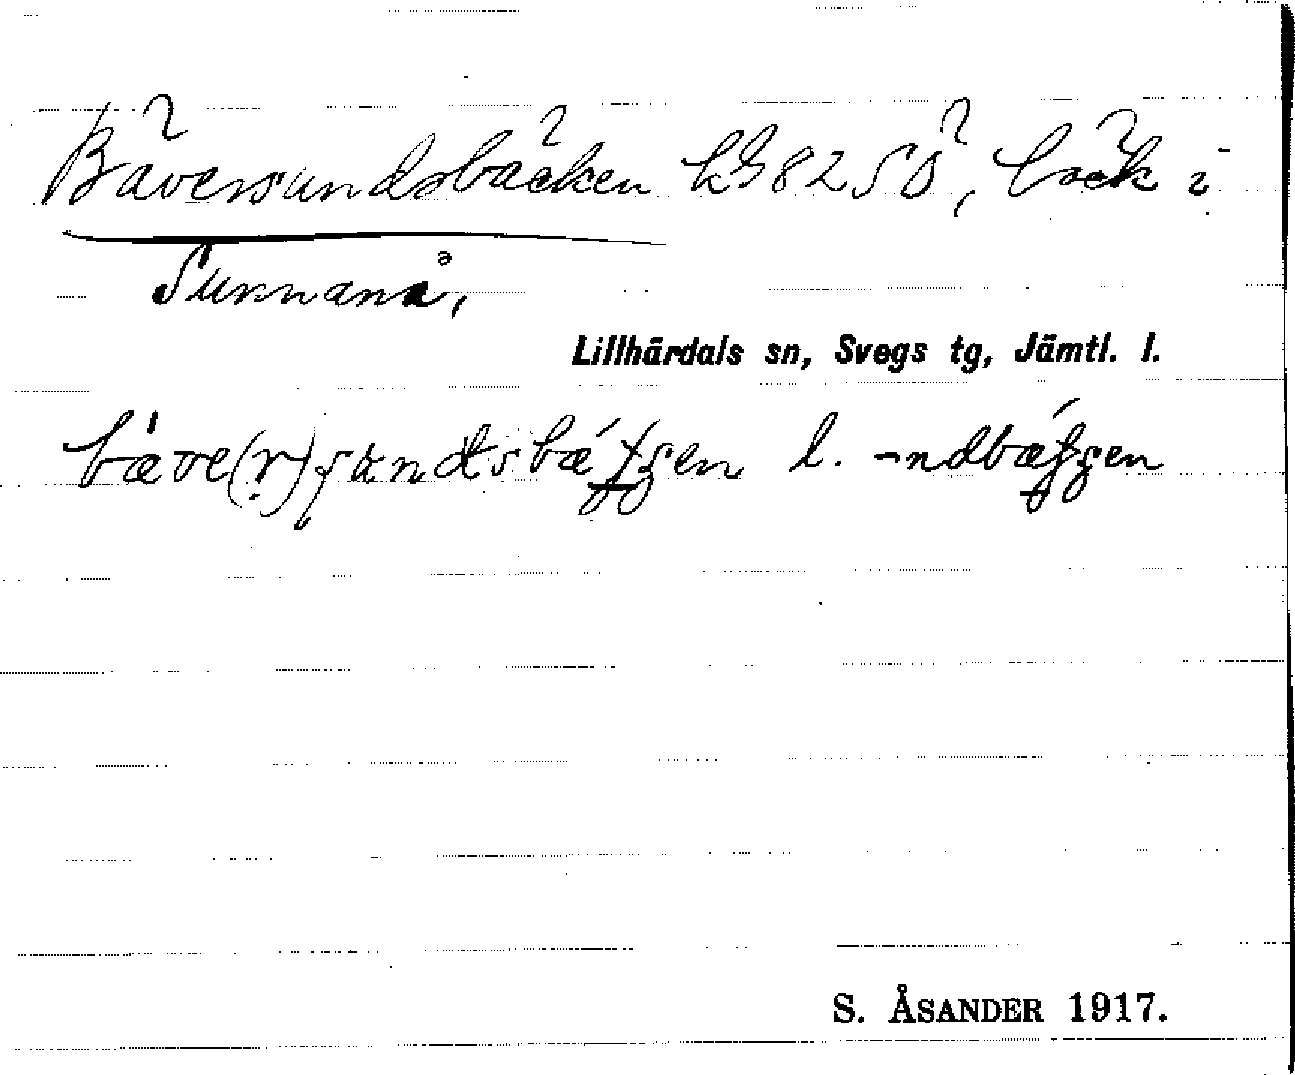 Bäversundsbäcken kB 82 SÖ, bäck i
Sunnanå,
Lillhärdals sn, Svegs tg, Jämtl. l.
bæve(r)sundsbæ l. -ndbæ
S. ÅSANDER 1917.